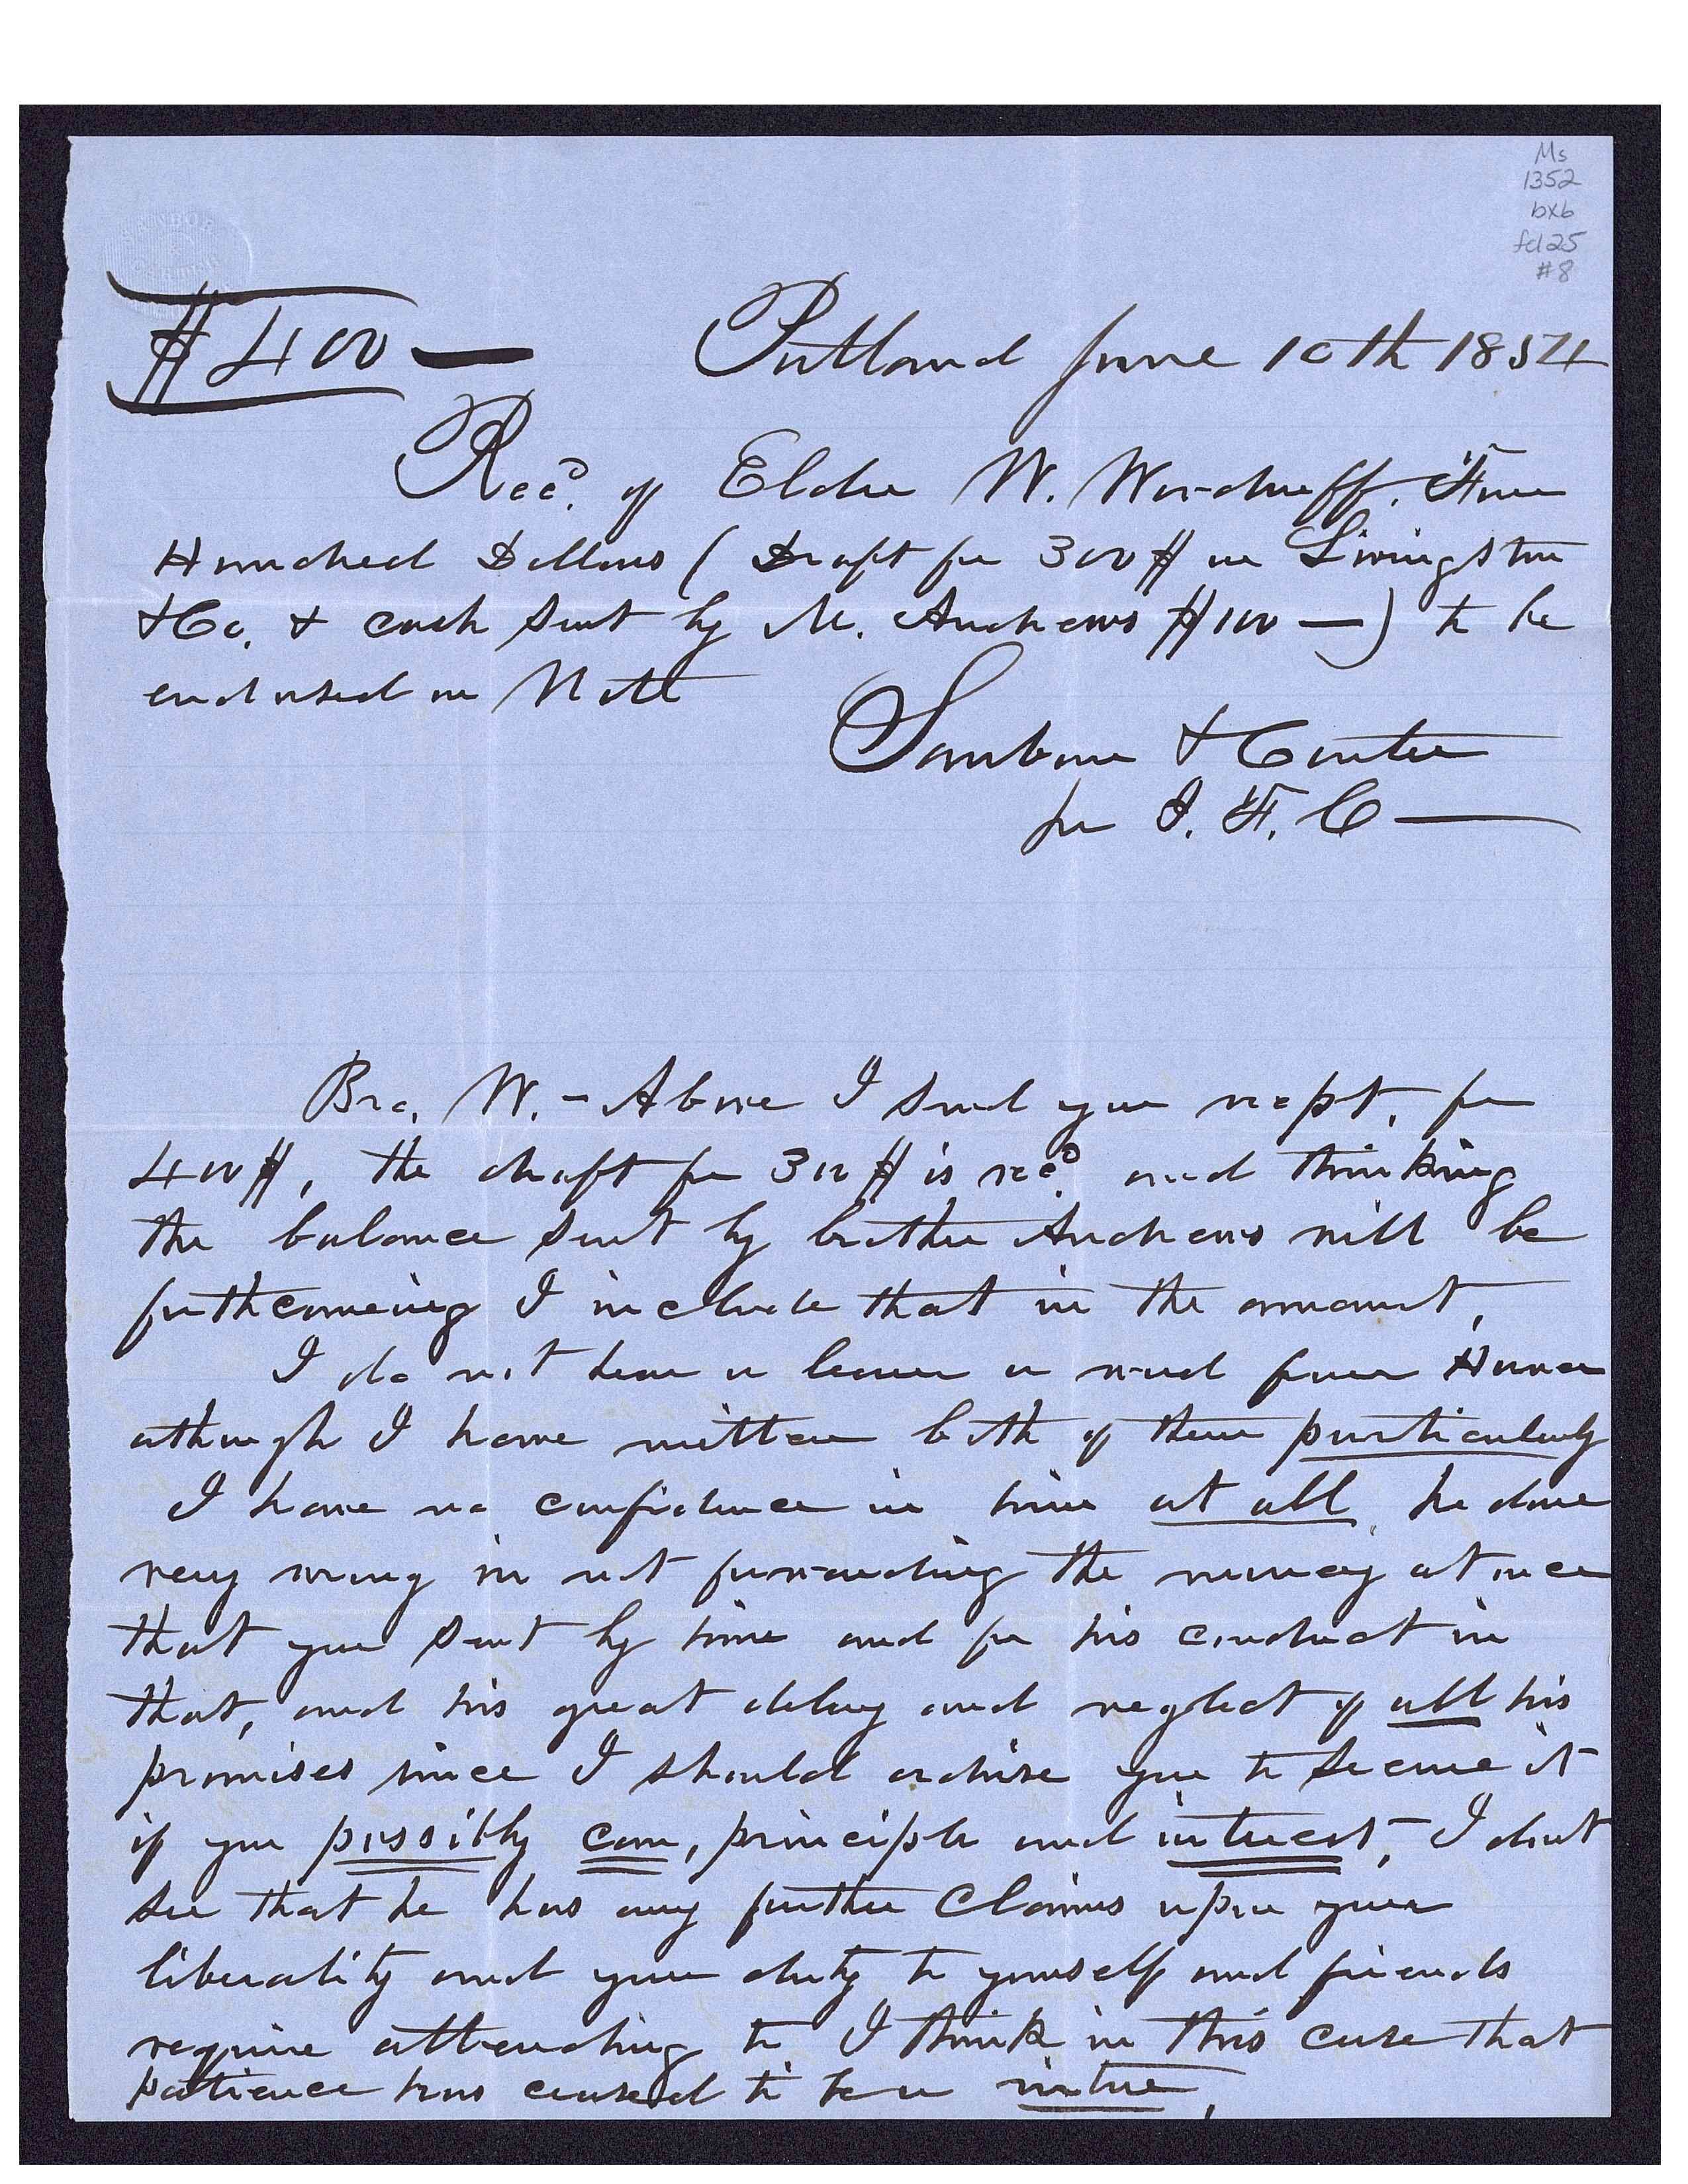 Ms
1352
bx6
fd 25
#8
$400 — Portland June 10th 1854
Recd. of Elder W. Woodruff. Four
Hundred Dollars ( Draft for 300$ on Livingston
& Co. & cash sent by M. Andrews $100 — ) to be
endorsed on Note
Sanborn & Carter
per I. F. C —
Bro. W. - Above I send you recpt. for
400$, the draft for 300$ is recd. and thinking
the balance sent by brother Andrews will be
forthcomeing I include that in the amount,
I do not hear a lower a word from
athough I have written both of them particularly
I have no confidence in him at all he done
very wrong in not forwarding the money at once
that you sent by him and for his conduct in
that, and his great delay and neglect of all his
promises since I should advise you to secure it
if you possibly can, principle and interest, I dont
see that he has any further Claims upon your
liberality and your duty to yourself and friends
require attending to I think in this case that
patience has ceased to be a virtue,